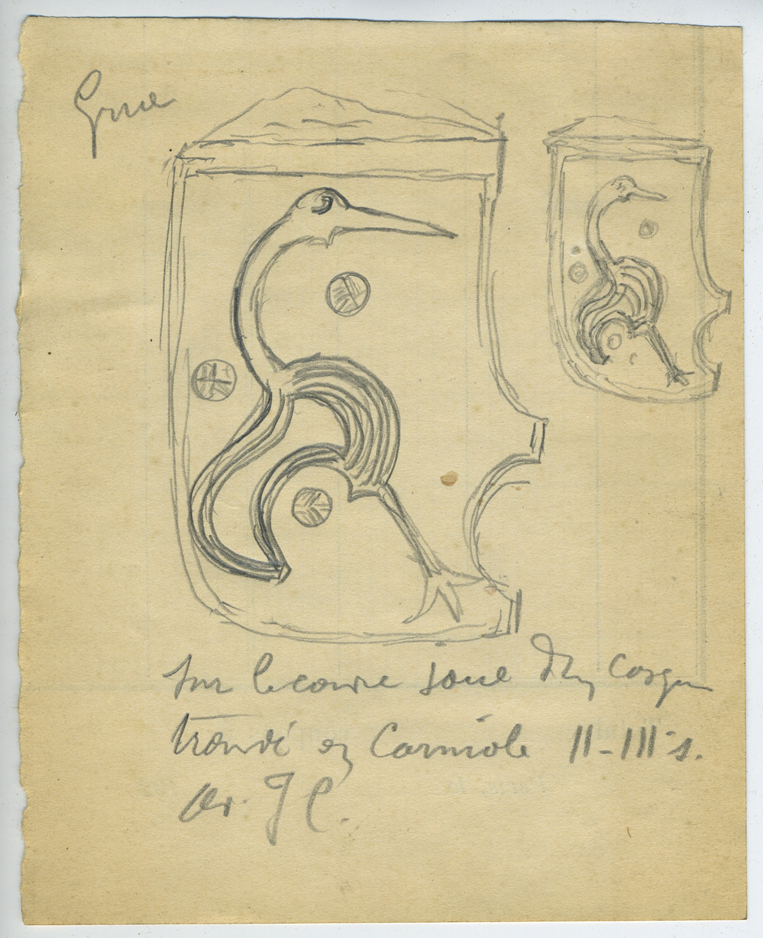 Grue
sur le couvre joue d'un casque
trouvé en Carniole II-III s.
av. J C.